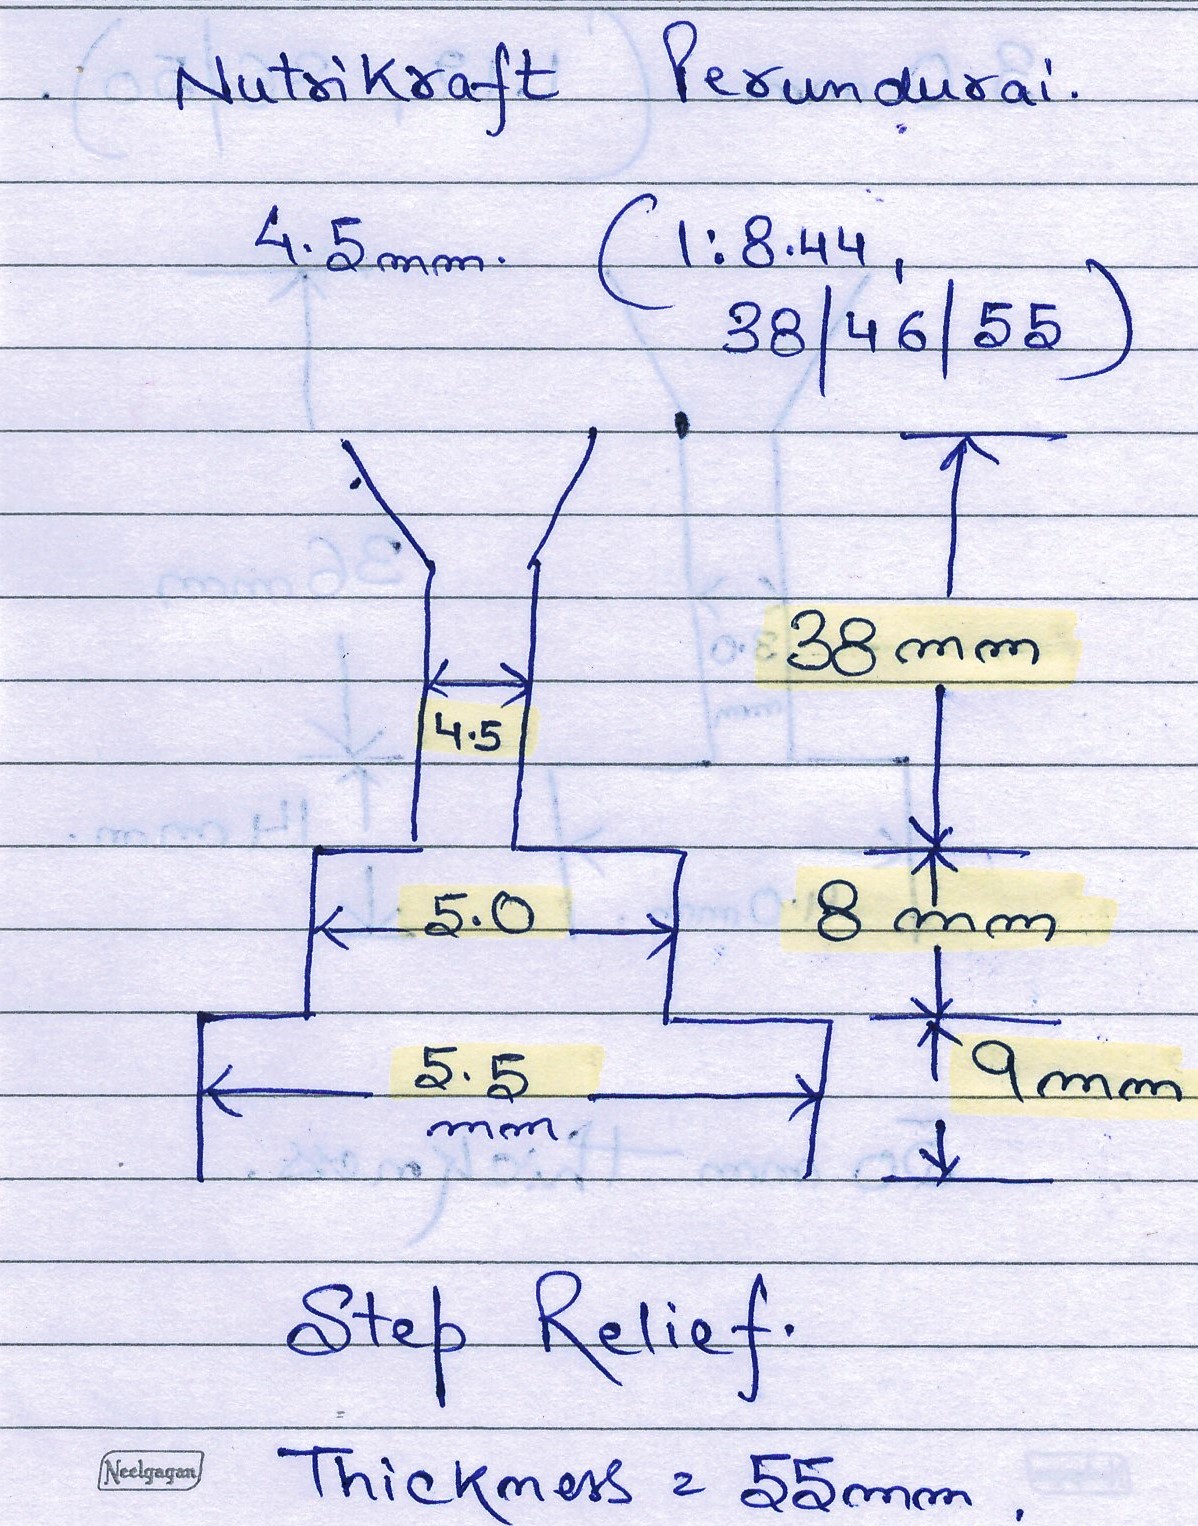 Nutrikraft Perundurai.
4.5mm. (1:8.44,
38/46/55)
38 mm
4.5
5.0
8 mm
5.5
mm.
9 mm
Step Relief.
Neelgagan
Thickness = 55mm.